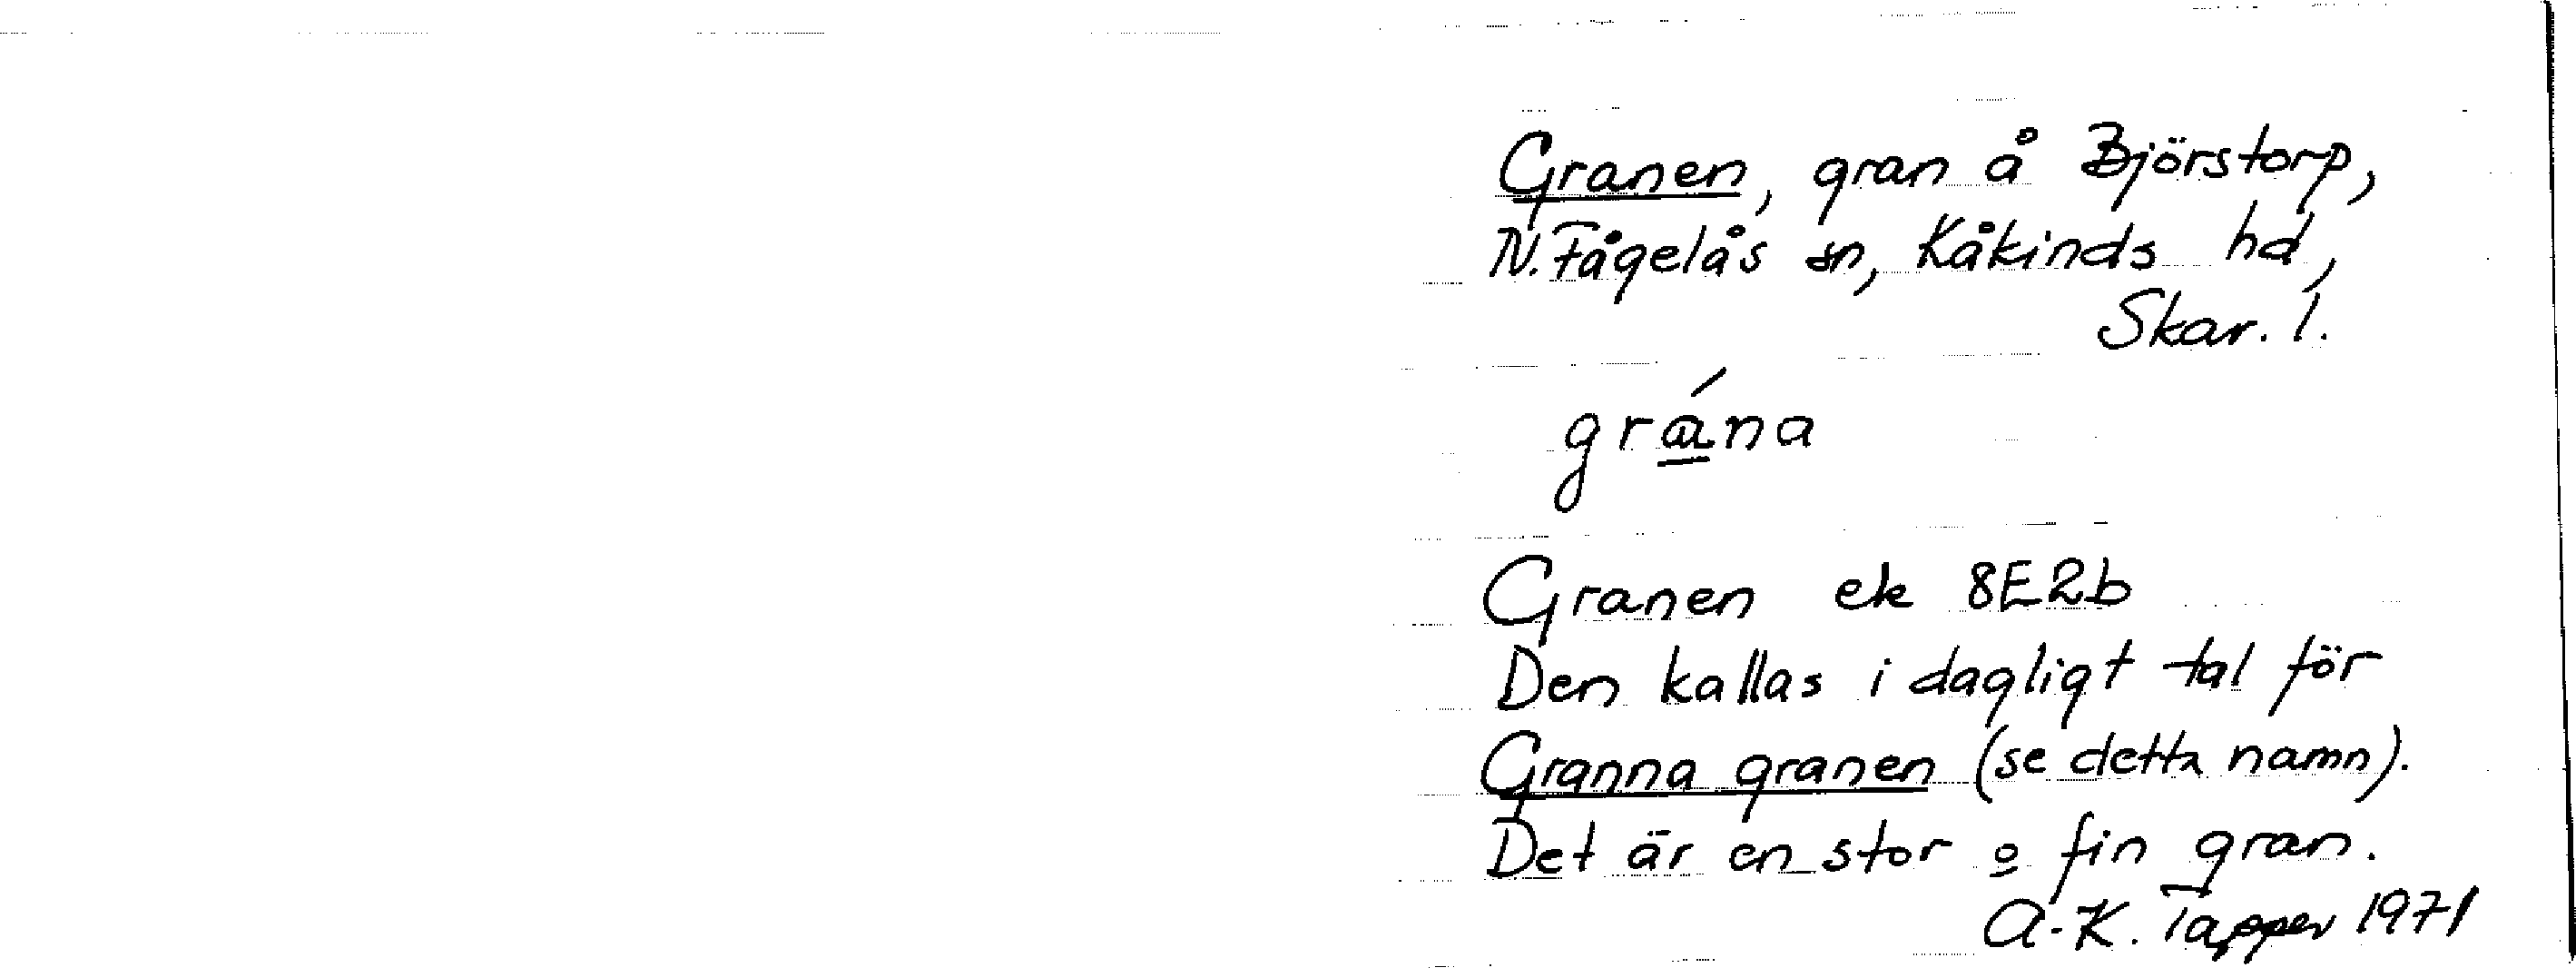 Granen, gran å Björstorp,
N. Fågelås sn, Kåkinds hd,
Skar. l.
grána
Granen ek 8E2b
Den kallas i dagligt tal för
Granna granen (se detta namn).
Det är en stor o fin gran.
A-K. Tapper 1971